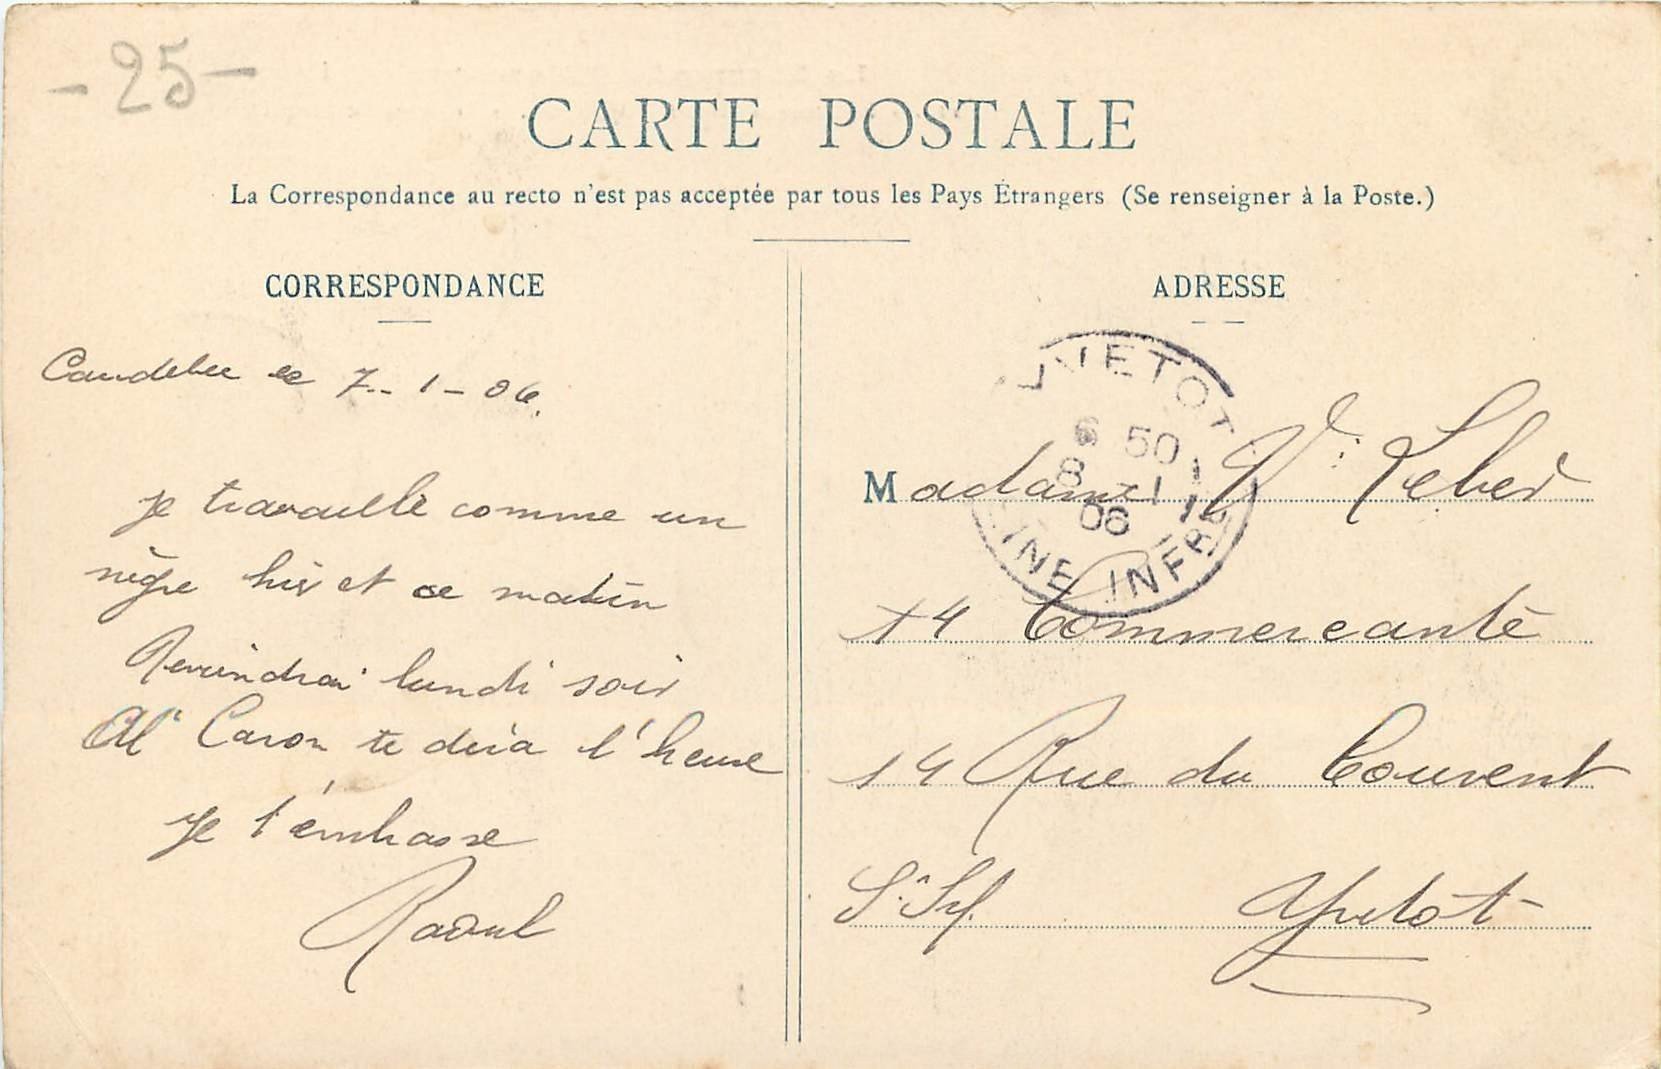 - 25 -
CARTE POSTALE
La Correspondance au recto n'est pas acceptée par tous les Pays Étrangers (Se renseigner à la Poste.)
CORRESPONDANCE
Caudebec le 7-1-06.
je travaille comme un
nègre hier et ce matin
Reviendrai lundi soir
Al Caron te dira l'heure
je t'embrasse
Raoul
ADRESSE
YVETOT
6 50
8 1
06
INE INFRE
Madame Vᵉ
14 Commercante
14 Rue du Couvent
Yvetot